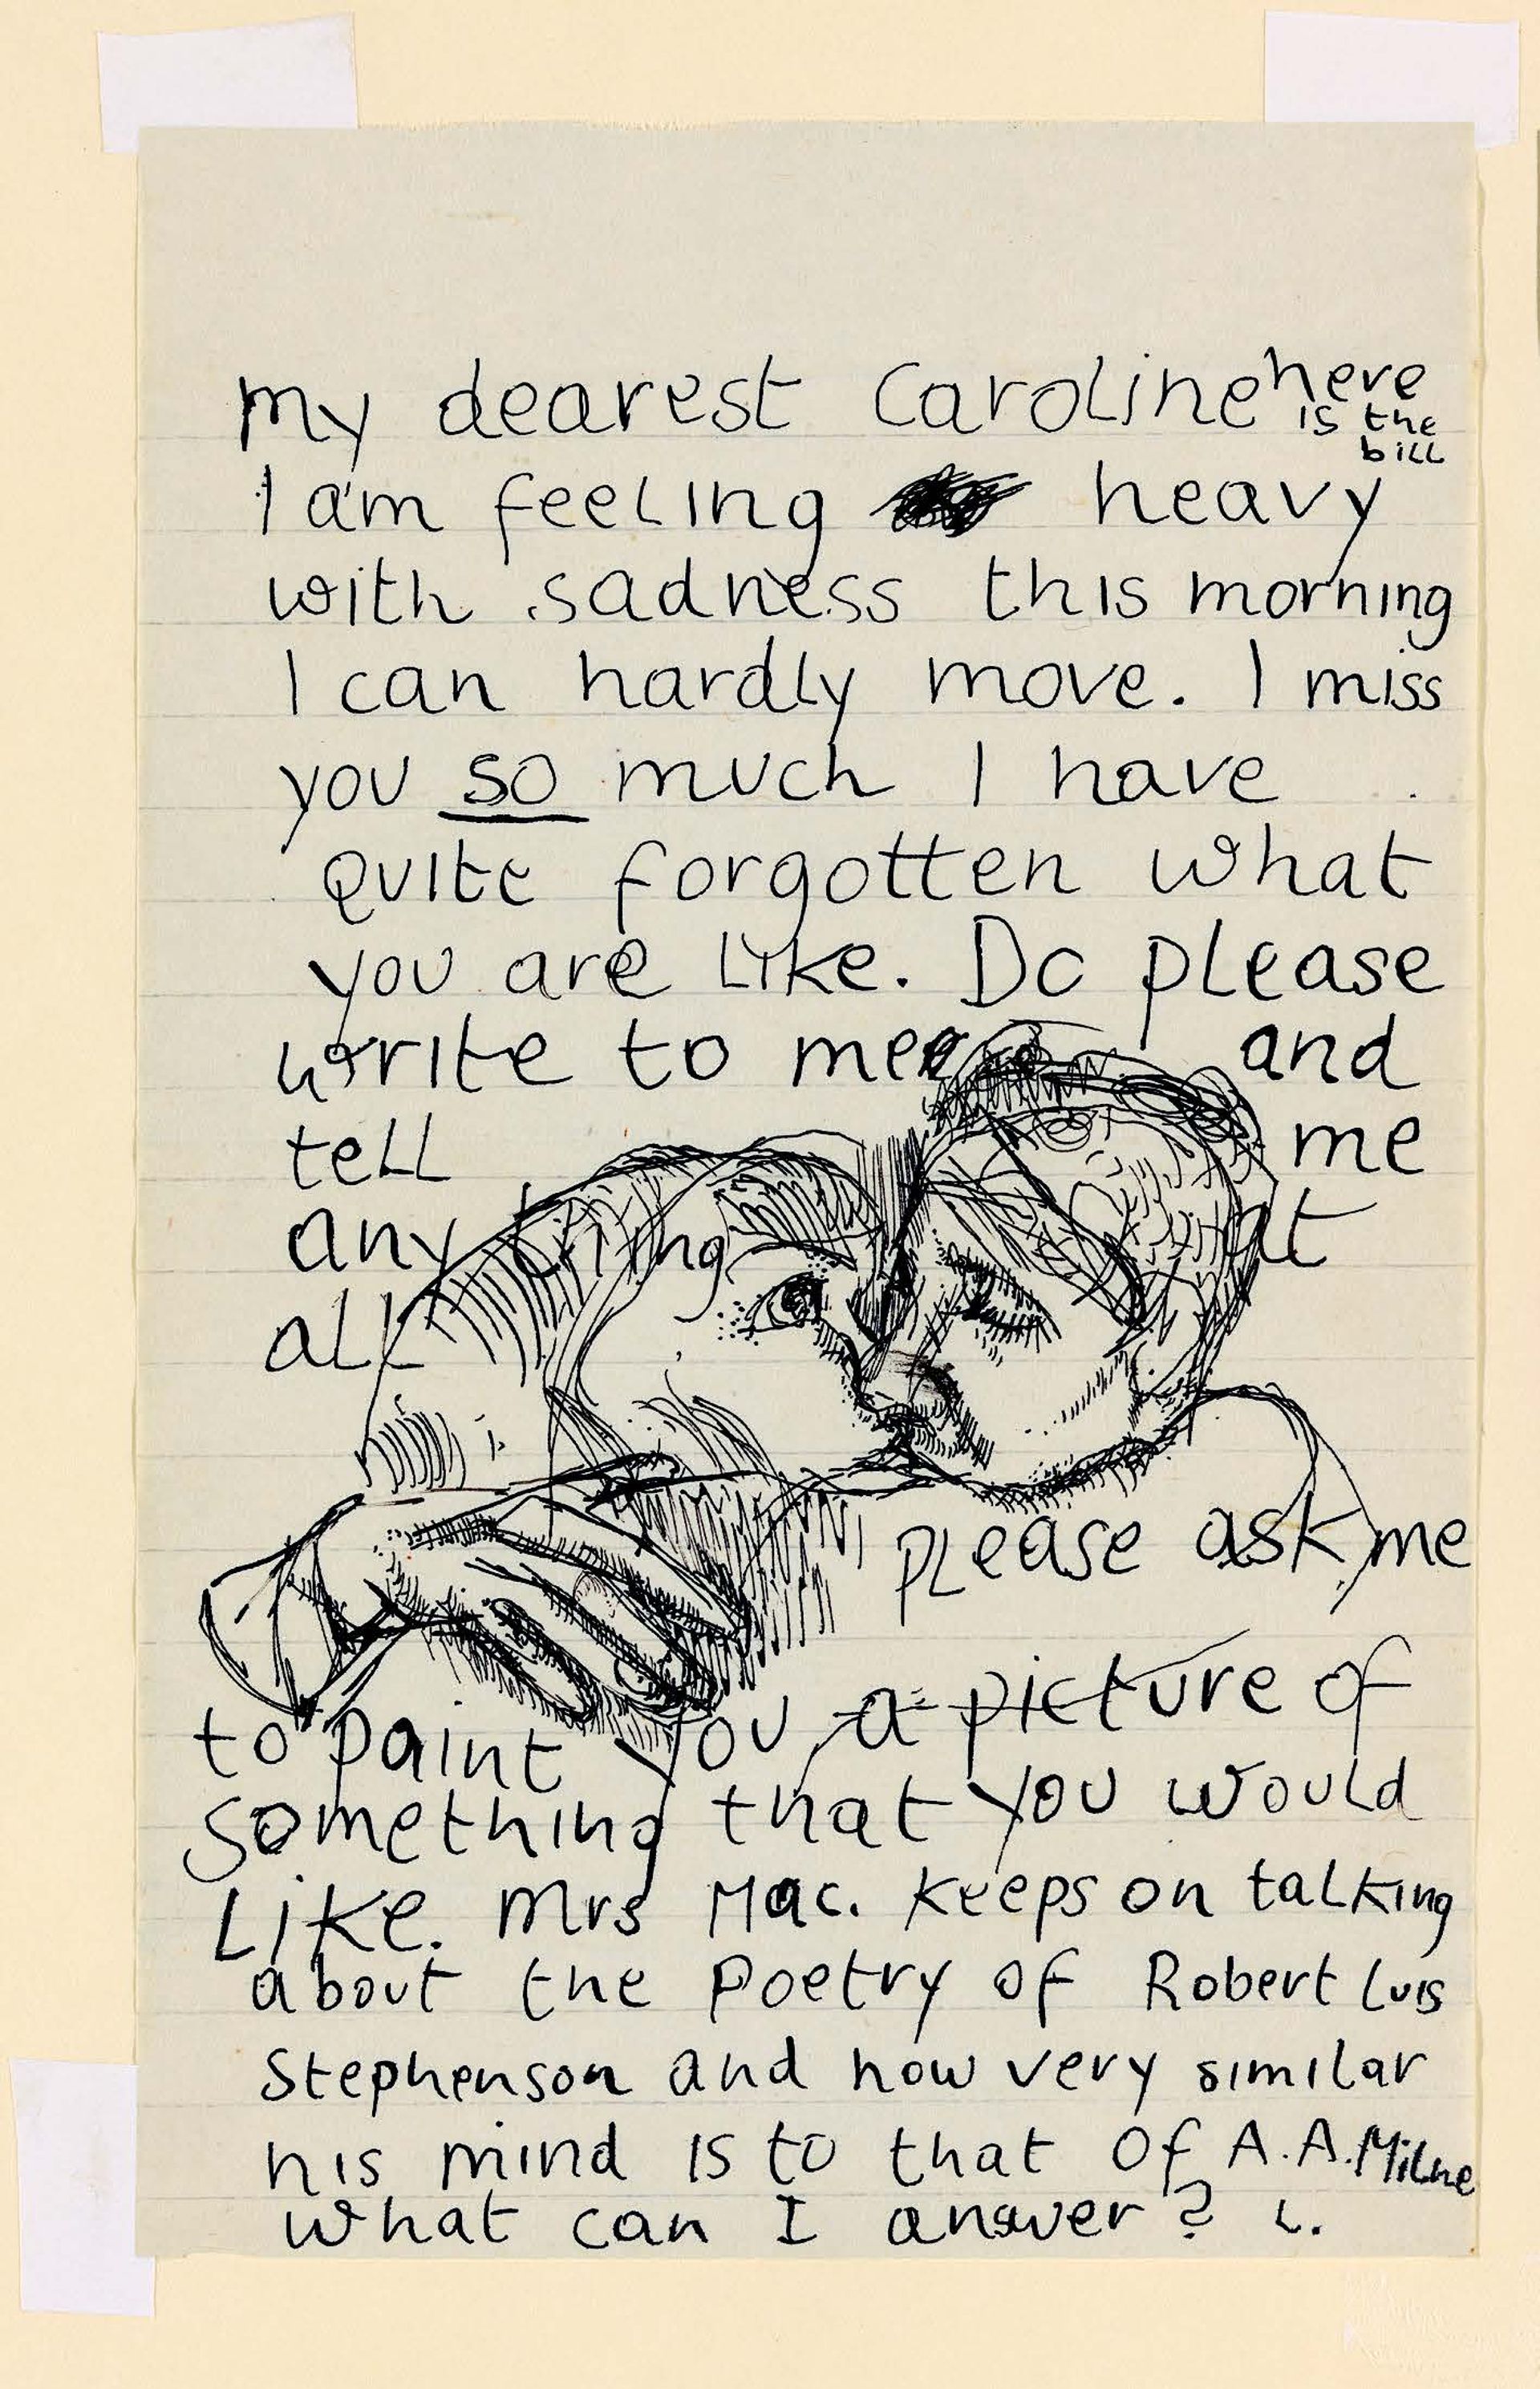 my dearest Caroline here
is the
bill
I am feeling heavy
with sadness this morning
I can hardly move. I miss
you so much I have
quite forgotten what
you are like. Do please
write to me and
tell me
any thing at
all
please ask me
to paint you, a picture of
something that you would
like. Mrs Mac. keeps on talking
about the poetry of Robert Luis
Stephenson and how very similar
his mind is to that of A.A. Milne
what can I answer? L.